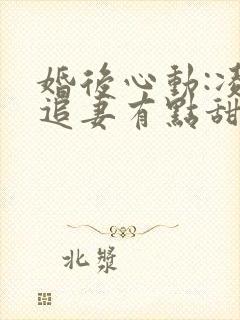 婚後心動:凌
追妻有點甜
北漿